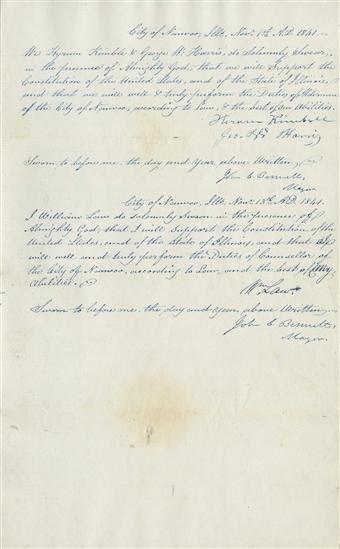 City of Nauvoo, Ills. Nov. 1st A.D. 1841.
We Hyrum Kimble & George W. Harris, do Solemnly Swear,
in the presence of Almighty God, that we will Support the
Constitution of the United States, and of the State of Illinois,
and that we will well & truly perform the Duties of Aldermen
of the City of Nauvoo, according to Law, & the best of our Abilities.
Hiram Kimball
Geo. W. Harris
Sworn to before me, the day and year above Written,
John C. Bennett,
Mayor.
City of Nauvoo, Ills. Nov. 13th A.D. 1841.
I William Law do solemnly Swear in the presence of
Almighty God, that I will Support the Constitution of the
United States, and of the State of Illinois, and that I
will well and truly perform the Duties of Councellor of
the City of Nauvoo, according to Law, and the best of My
Abilities.
Wm. Law.
Sworn to before me, the day and year above Written,
John C. Bennett,
Mayor.